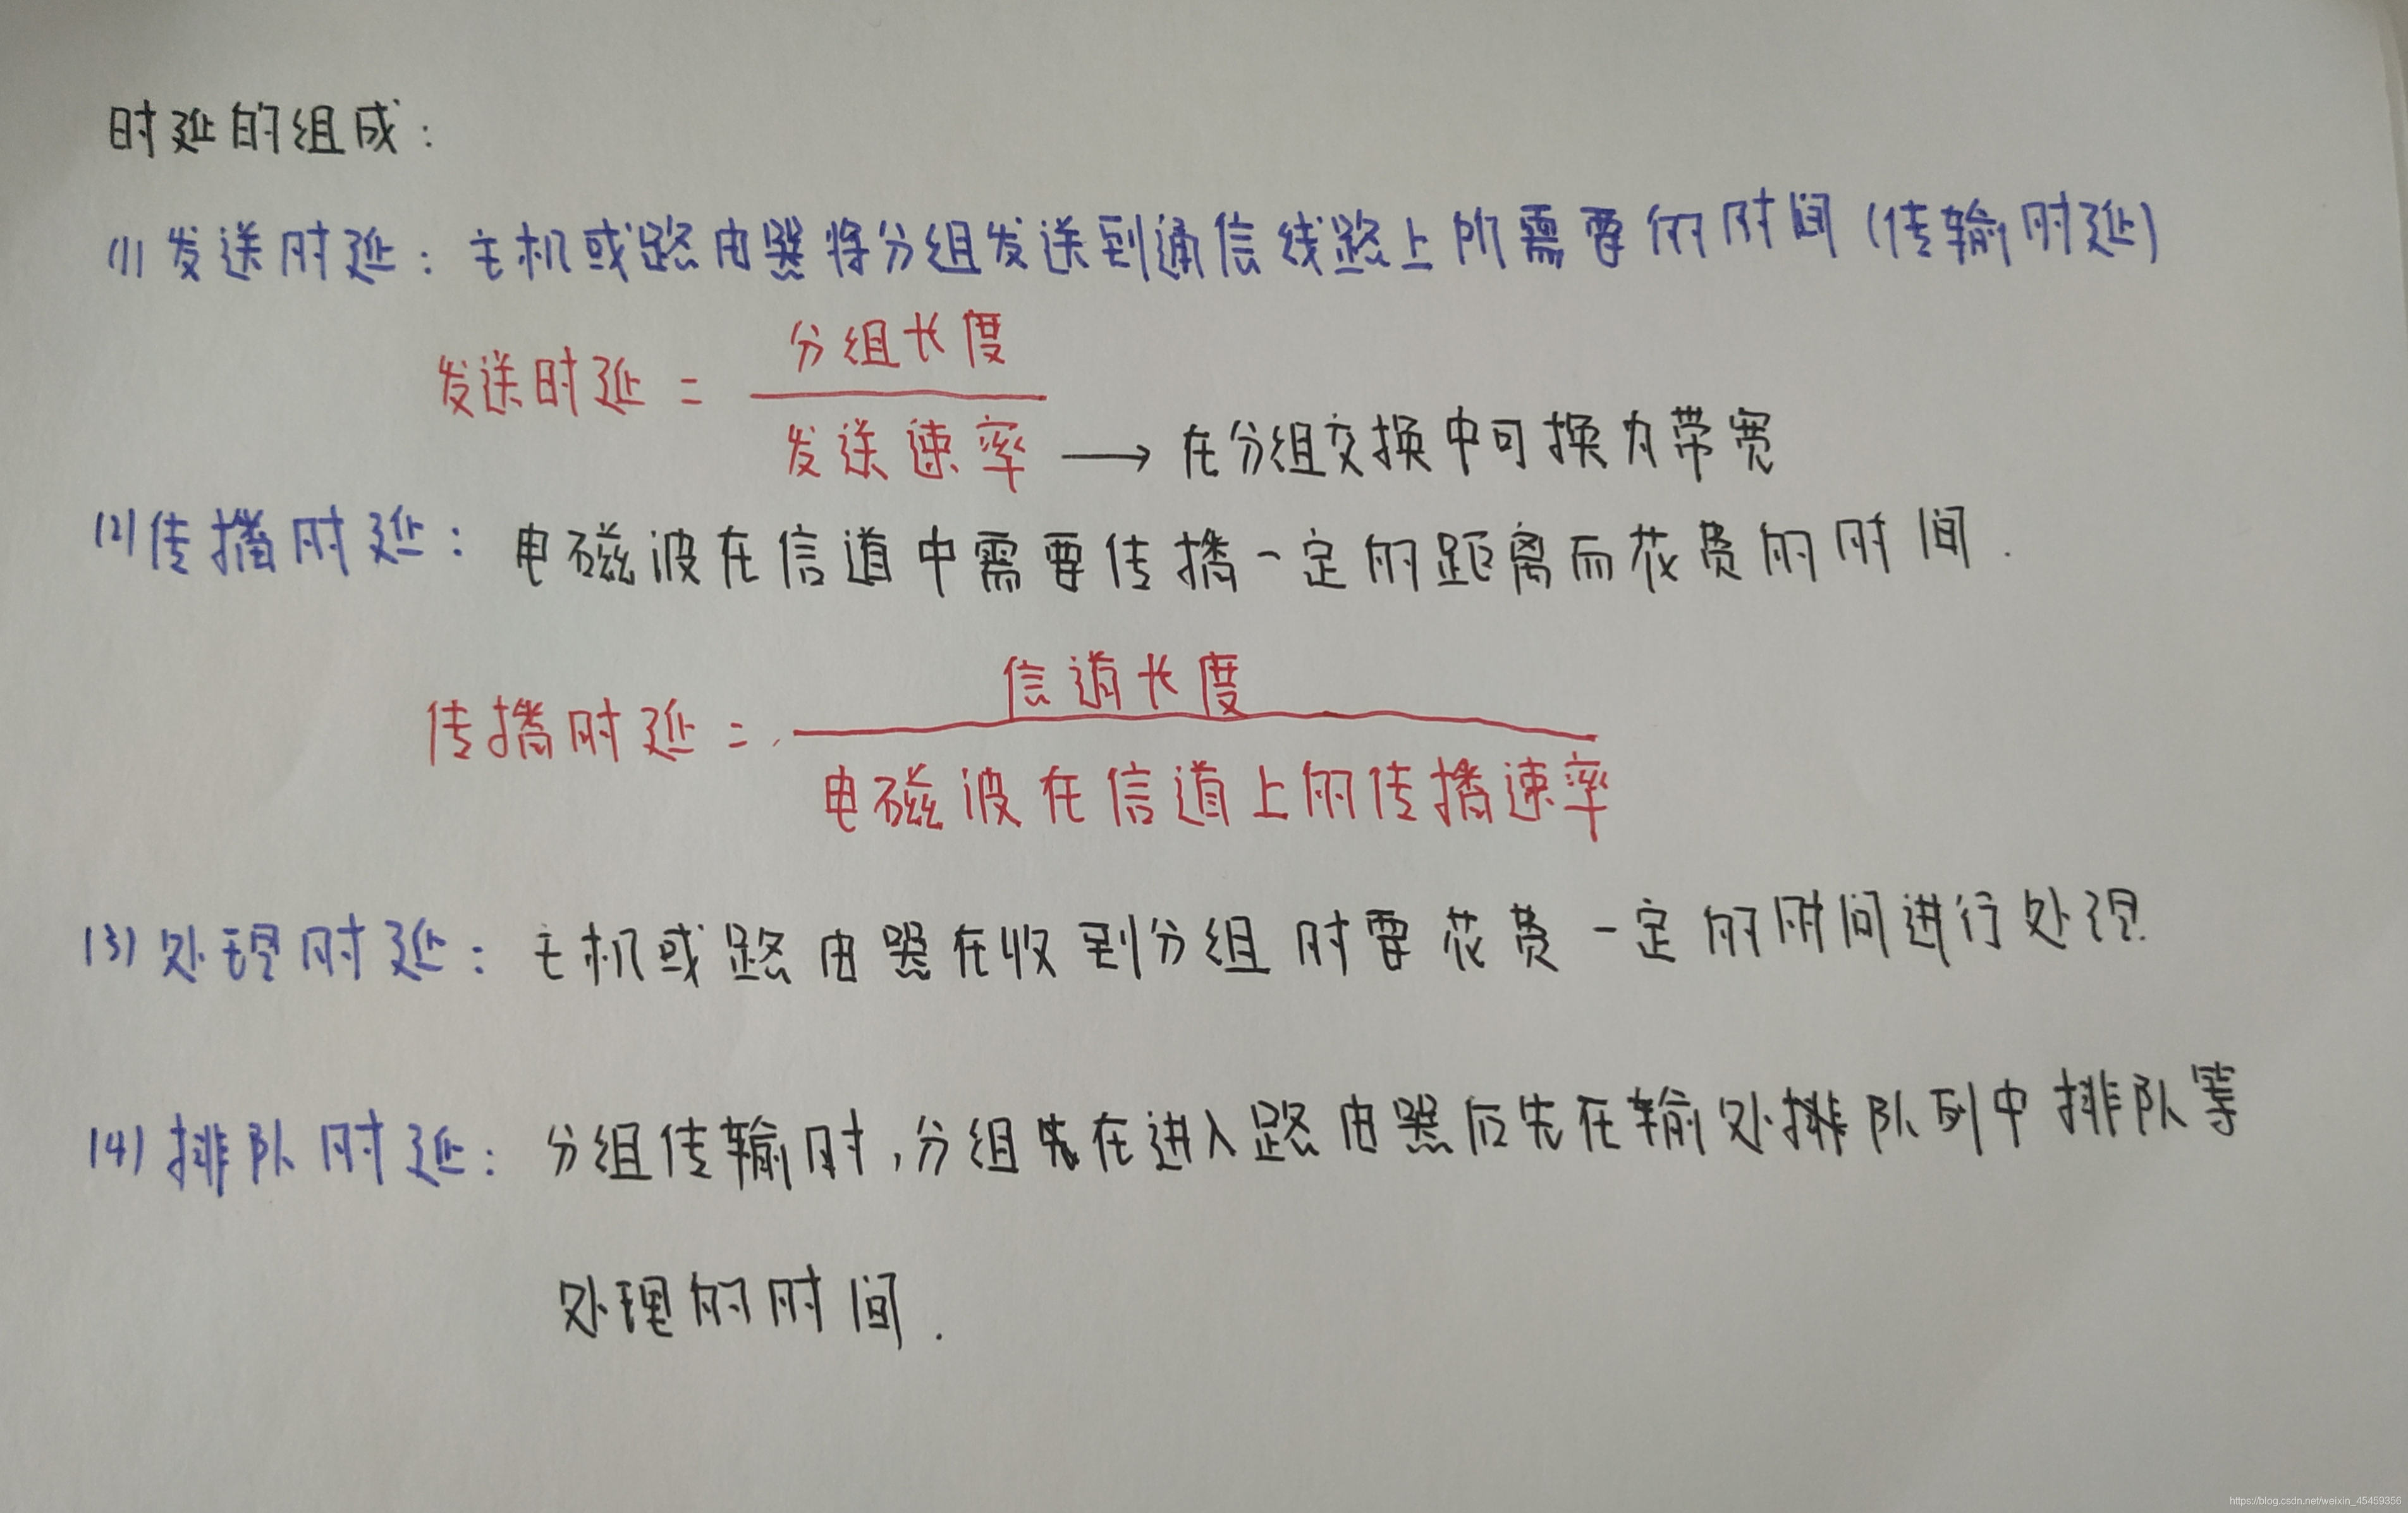 时延的组成：
(1) 发送时延：主机或路由器将分组发送到通信线路上所需要的时间(传输时延)
分组长度
发送时延 =
发送速率 → 在分组交换中可换为带宽
(2) 传播时延：电磁波在信道中需要传播一定的距离而花费的时间.
信道长度
传播时延 =
电磁波在信道上的传播速率
(3) 处理时延：主机或路由器在收到分组时要花费一定的时间进行处理.
(4) 排队时延：分组传输时,分组先在进入路由器后先在输处排队列中排队等
处理的时间.
https://blog.csdn.net/weixin_45459356